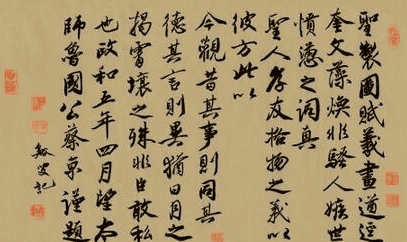 聖製圖賦羲畫道逕
奎文藻煥非騷人嫉世
憤懣之詞真
聖人孝友格物之義以
彼方此以
今觀昔其事則同其
德其言則異猶日月之
揭霄壤之殊非臣敢私
也政和五年四月望太
師魯國公蔡京謹題
記